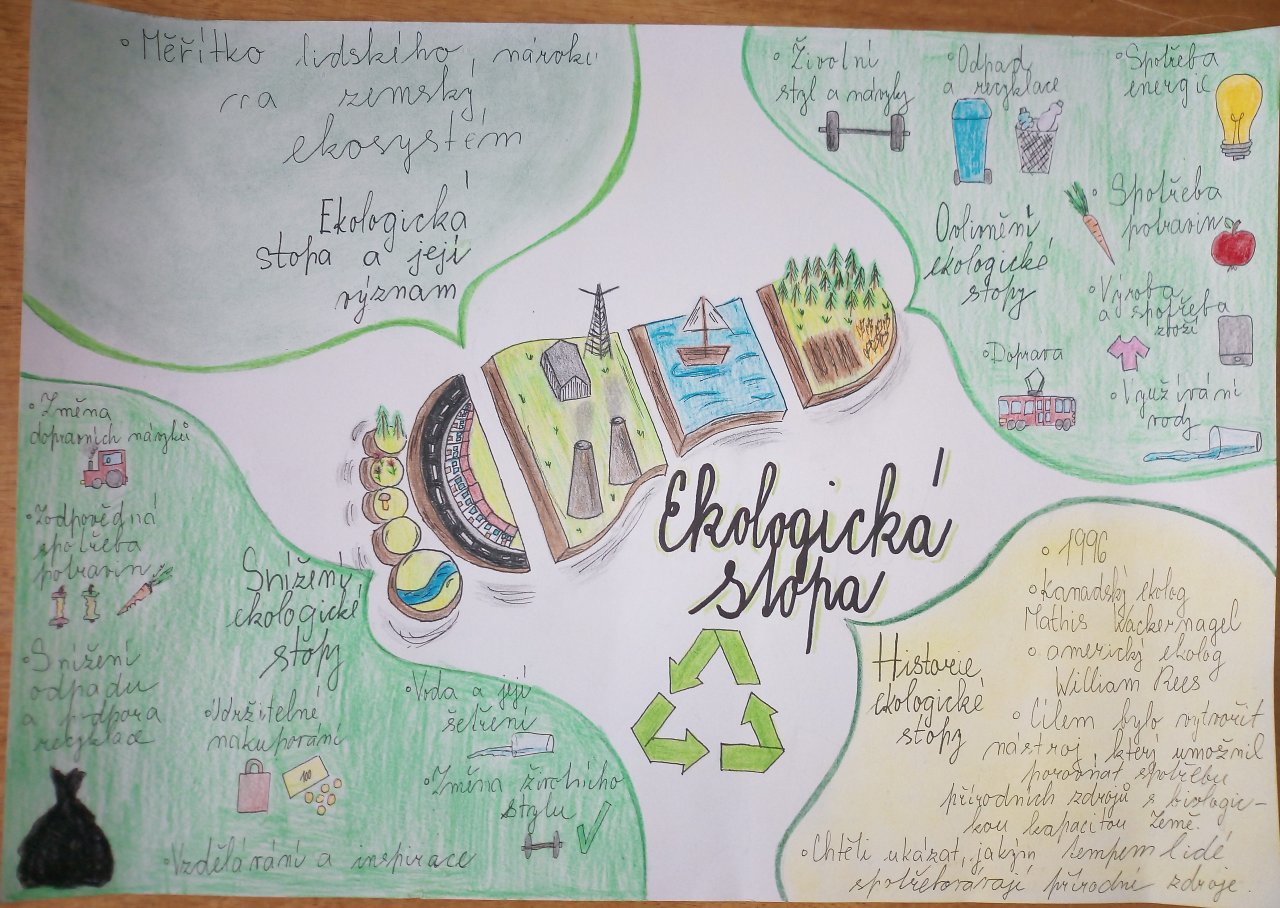 ◦ Měřítko lidského, nároků
na zemský
ekosystém
Ekologická
stopa a její
význam
◦ Životní
styl a návyky
◦ Odpad
a recyklace
◦ Spotřeba
energie
◦ Spotřeba
potravin
Ovlivnění
ekologické
stopy
◦ Výroba
a spotřeba
zboží
◦ Doprava
◦ Využívání
vody
Ekologická
stopa
◦ Změna
dopravních návyků
◦ Zodpovědná
spotřeba
potravin
Snížený
ekologické
stopy
◦ Snížení
odpadu
a podpora
recyklace
◦ Udržitelné
nakupování
100
◦ Voda a její
šetření
◦ Změna životního
stylu
◦ Vzdělávání a inspirace
Historie
ekologické
stopy
◦ 1996
◦ Kanadský ekolog
Mathis Wackernagel
◦ americký ekolog
William Rees
◦ Cílem bylo vytvořit
nástroj, který umožnil
porovnat spotřebu
přírodních zdrojů s biologic-
kou kapacitou Země.
◦ Chtěli ukázat, jakým tempem lidé
spotřebovávají přírodní zdroje.